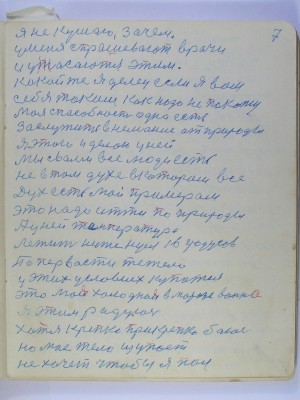 7
Я не кушаю, Зачем.
у меня спрашевают врачи
и ужасаются этим.
Какой же я делец если я вам
себя таким как надо не покажу
Моя способность одно есть
Заслужить внемание от природы
Я этого и делаю у ней
Мы с вами все люди есть
не в том духе в котором все
Дух есть мой примерам
это надо итти по природы
А у ней температура
Летит ниже нуля 16 градусов
По первости тежело
у этих условиях купатся
это мой холодная в море ванна
Я этим радуюсь
Хотя крепко прикрепко балею
но мне тело
не хочет чтобы я пал